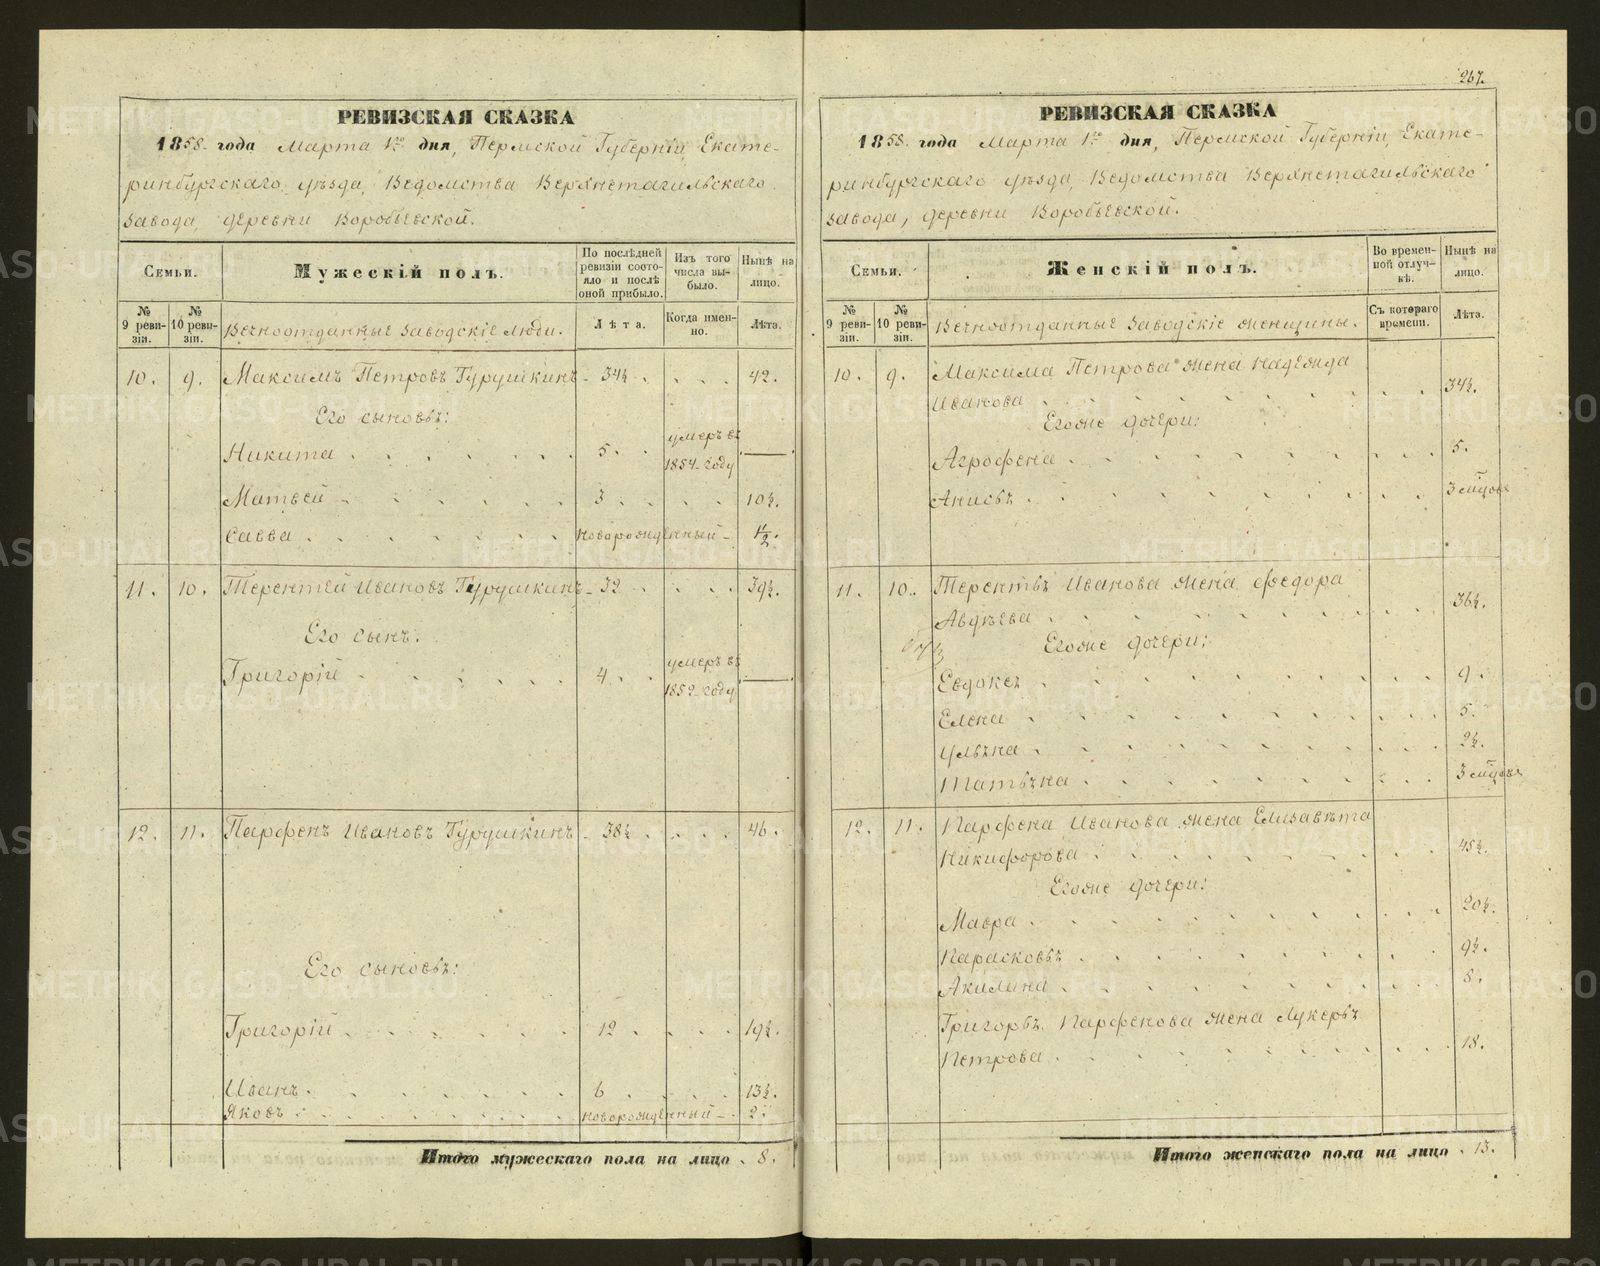 267.
РЕВИЗСКАЯ СКАЗКА
1858. года Марта 1го дня, Пермской Губерніи, Екате-
ринбургскаго уѣзда, Ведомства Верхнетагильскаго
завода, деревни Воробьевской.
Семьи.
Мужескій полъ.
По послѣдней ревизіи состояло и послѣ оной прибыло.
Изъ того числа выбыло.
Нынѣ на лицо.
№ 9 ревизіи.
№ 10 ревизіи.
Вечноотданные заводскіе люди.
Лѣта.
Когда именно.
Лѣта.
10. 9. Максимъ Петровъ Гурушкинъ 34½ 42.
Его сыновья:
Никита 5. умеръ въ 1854 году —
Матвей 3 10½.
Савва новорожденный ½.
11. 10. Терентей Ивановъ Гурушкинъ 32 39½.
Его сынъ:
Григорій 4 умеръ въ 1852 году —
12. 11. Парфенъ Ивановъ Гурушкинъ 38½ 46.
Его сыновья:
Григорій 12 19½.
Иванъ 6 13½.
Яковъ новорожденный 2.
Итого мужескаго пола на лицо 8.
РЕВИЗСКАЯ СКАЗКА
1858. года Марта 1го дня, Пермской Губерніи, Екате-
ринбургскаго уѣзда, Ведомства Верхнетагильскаго
завода, деревни Воробьевской.
Семьи.
Женскій полъ.
Во временной отлучкѣ.
Нынѣ на лицо.
№ 9 ревизіи.
№ 10 ревизіи.
Вечноотданные заводскіе женщины.
Съ котораго времени.
Лѣта.
10. 9. Максима Петрова жена Надежда
Иванова 34½.
Егоже дочери:
Агрофена 5.
Анисья 3 мѣцов
11. 10. Терентья Иванова жена Федора
Авдѣева 36½.
Егоже дочери:
Евдокея 9.
Елена 5.
Ульяна 2½.
Татьяна 3 мѣцовъ
12. 11. Парфена Иванова жена Елизавѣта
Никифорова 45½.
Егоже дочери:
Мавра 20½.
Парасковья 9½.
Акилина 8.
Григорья Парфенова жена Лукерья
Петрова 18.
Итого женскаго пола на лицо 13.
METRIKI.GASO-URAL.RU